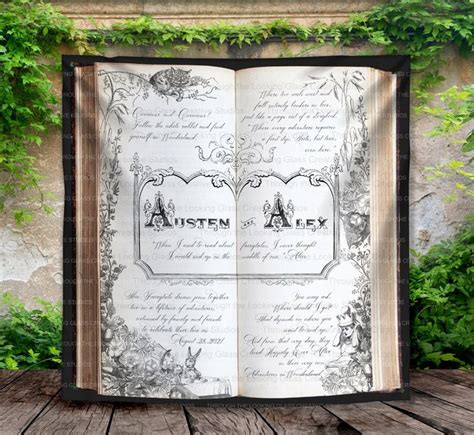 Curiouser and Curiouser!
Follow the white rabbit and find
yourself in Wonderland.
Where two souls meet and
fall entirely in love,
just like a page out of a storybook.
Where every adventure requires
a first step. but true,
even here.
AUSTEN AND ALEX
When I used to read about fairytales, I never thought
I would end up in the middle of one."
Fairytale dreams join together
in a lifetime of adventures,
witnessed by family and friends
to celebrate their love on
August 28, 2021
You may ask,
Where should I go?
That depends on where you
want to end up.
And from that very day, they
lived Happily Ever After
in their very own
Adventures in Wonderland.